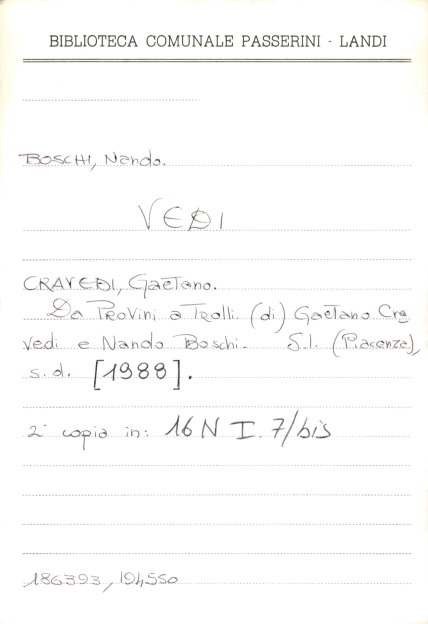 BIBLIOTECA COMUNALE PASSERINI - LANDI
BOSCHI, Nando.
VEDI
CRAVEDI, Gaetano.
Da Provini a Trolli. (di) Gaetano Cra
vedi e Nando Boschi. S.l. (Piacenza),
s.d. [1988].
2ª copia in: 16 N I. 7/bis
186393, 194550